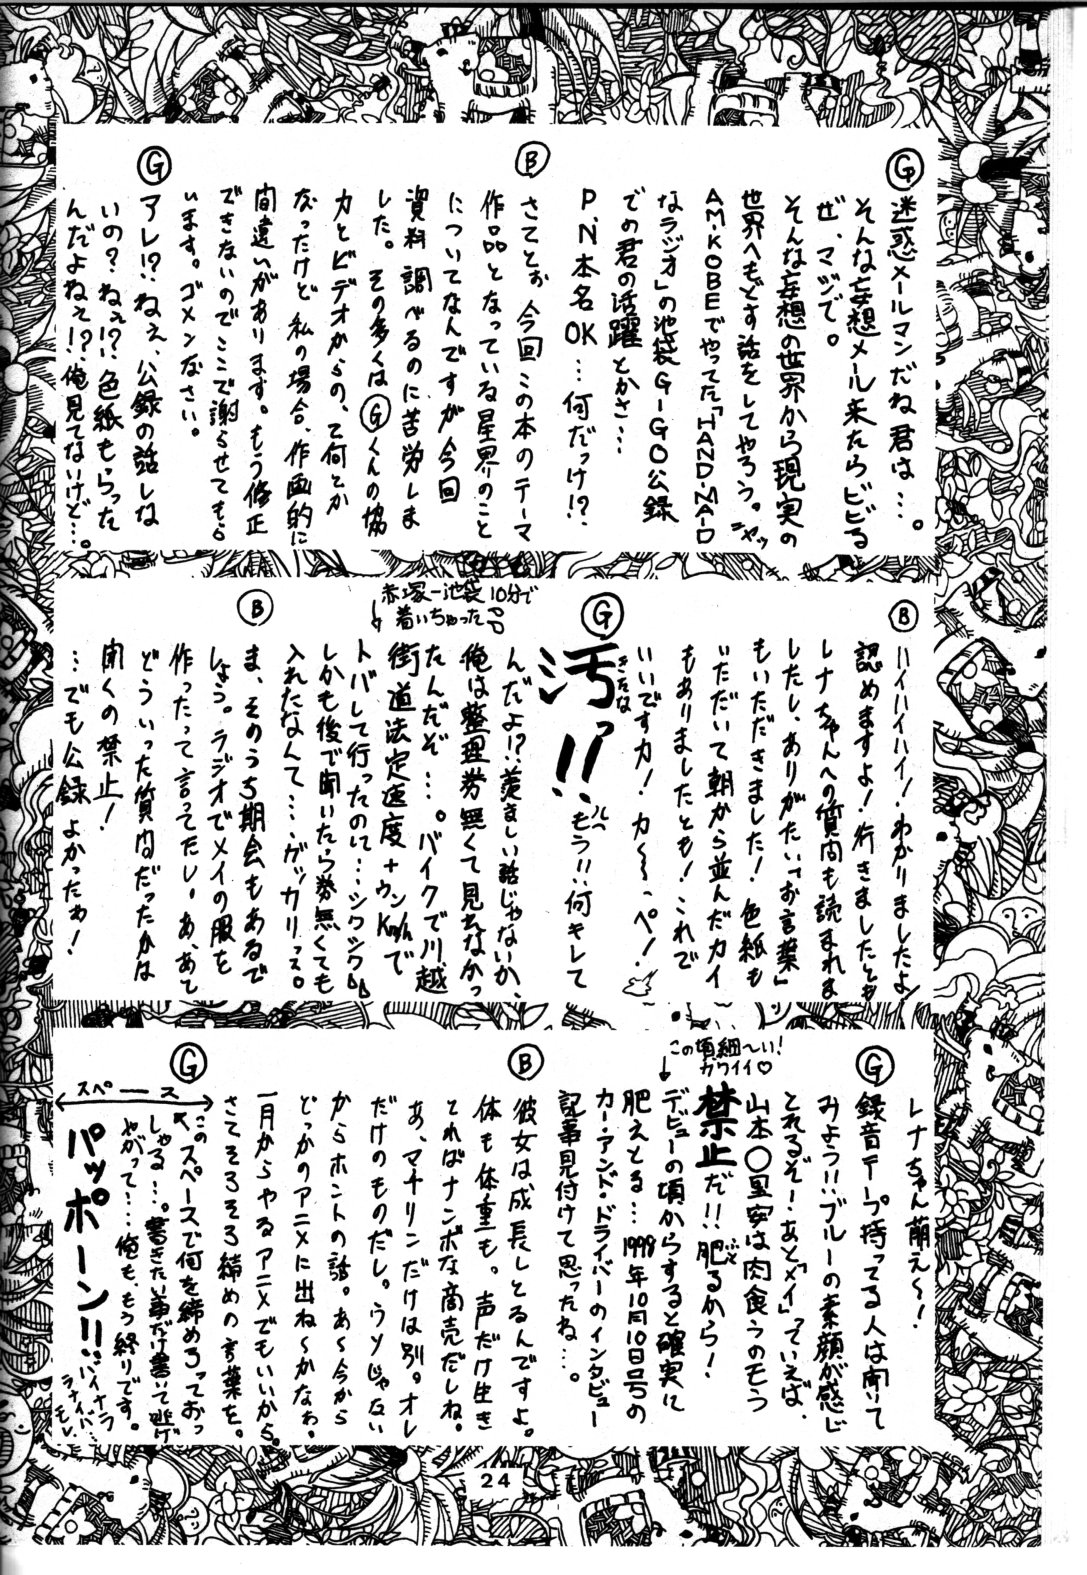 Ⓖ
迷惑メールマンだね君は…。
そんな妄想メール来たらビビる
ぜ、マジで。
そんな妄想の世界から現実の
世界へもどす話をしてやろう。ニヤッ
AM・KOBEでやってた「HAND・MAID
なラジオ」の池袋G-GO公録
での君の活躍とかさ…
P.N本名OK…何だっけ!?
Ⓑ
さてとぉ、今回この本のテーマ
作品となっている星界のこと
についてなんですが今回
資料調べるのに苦労しま
した。その多くはⒼくんの協
力とビデオからの、て何とか
なったけど私の場合、作画的に
間違いがあります。もう修正
できないのでここで謝らせてもら
います。ゴメンなさい。
Ⓖ
アレ!?ねぇ、公録の話しな
いの?ねぇ!?色紙もらった
んだよねぇ!?俺見てないけど…。
Ⓑ
ハイハイハイ!わかりましたよ!
認めますよ!行きましたとも
レナちゃんへの質問も読まれま
したし、ありがたい「お言葉」
もいただきました!色紙も
いただいて朝から並んだカイ
もありましたとも!これで
いいですカ!カ〜〜っペ!
Ⓖ
汚っ!!もう!!何キレて
きたな
んだよ!?羨ましい話じゃないか…
俺は整理券無くて見れなかっ
たんだぞ…。バイクで川越
街道法定速度+ウンKm/hで
赤塚−池袋10分で
着いちゃった
トバして行ったのに…シクシク
しかも後で聞いたら券無くても
入れたなんて…ゲッカリっス。
Ⓑ
ま、そのうち期会もあるで
しょう。ラジオでメイの服を
作ったって言ってたし。あ、あと
どういった質問だったかは
聞くの禁止!
…でも公録よかったわ!
レナちゃん萌え〜!
Ⓖ
録音テープ持ってる人は聞いて
みよう!!ブルーの素顔が感じ
とれるぞ!あと「メイ」っていえば、
山本○里安は肉食うのもう
禁止だ!!肥るから!
この頃細〜い!
カワイイ♡
デビューの頃からすると確実に
肥えとる…1998年10月10日号の
カー・アンド・ドライバーのインタビュー
記事見付けて思ったね…。
Ⓑ
彼女は成長しとるんですよ。
体も体重も。声だけ生き
とればナンボな商売だしね。
あ、マチリンだけは別。オレ
だけのものだし。ウソじゃない
からホントの話。あ〜今から
どっかのアニメに出ね〜かなぁ。
一月からやるアニメでもいいから。
さてそろそろ締めの言葉を。
Ⓖ
スペース
このスペースで何を締めろっておっ
しゃる…。書きたい事だけ書いて逃げ
やがって…俺も、もう終りです。
パッポーン!!
バイナラ
ラナイバ…
モレ
24